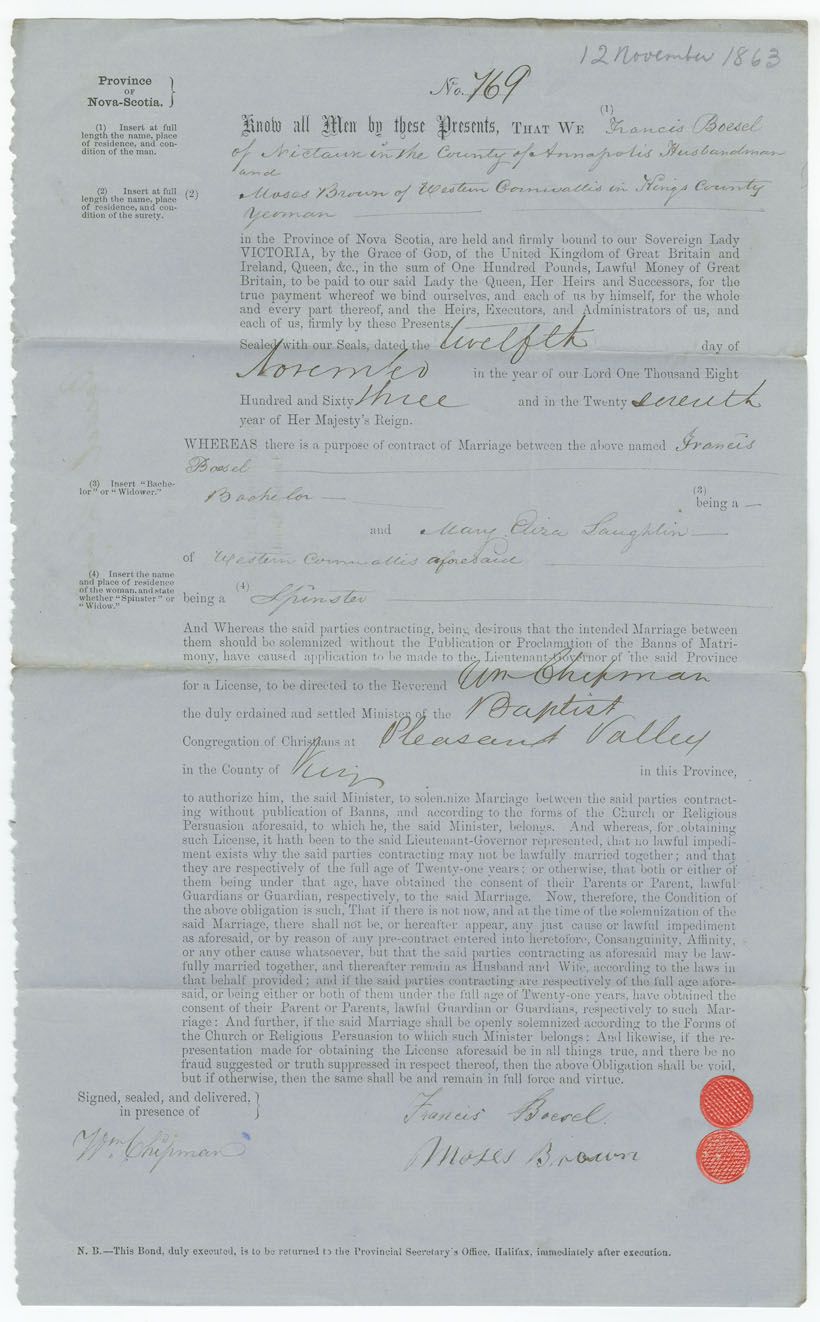 12 November 1863
Province
OF
Nova-Scotia.
No. 769
(1) Insert at full
length the name, place
of residence, and con-
dition of the man.
(1)
Know all Men by these Presents, THAT WE Francis Boesel
of Nictaux in the County of Annapolis Husbandman
and
(2) Insert at full
length the name, place
of residence, and con-
dition of the surety.
(2) Moses Brown of Western Cornwallis in Kings County
Yeoman
in the Province of Nova Scotia, are held and firmly bound to our Sovereign Lady
VICTORIA, by the Grace of GOD, of the United Kingdom of Great Britain and
Ireland, Queen, &c., in the sum of One Hundred Pounds, Lawful Money of Great
Britain, to be paid to our said Lady the Queen, Her Heirs and Successors, for the
true payment whereof we bind ourselves, and each of us by himself, for the whole
and every part thereof, and the Heirs, Executors, and Administrators of us, and
each of us, firmly by these Presents.
Sealed with our Seals, dated the twelfth day of
November in the year of our Lord One Thousand Eight
Hundred and Sixty three and in the Twenty seventh
year of Her Majesty's Reign.
WHEREAS there is a purpose of contract of Marriage between the above named Francis
Boesel
(3) Insert "Bache-
lor" or "Widower."
(3)
Bachelor being a
and Mary Eliza Laughlin
of Western Cornwallis aforesaid
(4) Insert the name
and place of residence
of the woman, and state
whether "Spinster" or
"Widow."
being a (4) Spinster
And Whereas the said parties contracting, being desirous that the intended Marriage between
them should be solemnized without the Publication or Proclamation of the Banns of Matri-
mony, have caused application to be made to the Lieutenant-Governor of the said Province
for a License, to be directed to the Reverend Wm Chipman
the duly ordained and settled Minister of the Baptist
Congregation of Christians at Pleasant Valley
in the County of Kings in this Province,
to authorize him, the said Minister, to solemnize Marriage between the said parties contract-
ing without publication of Banns, and according to the forms of the Church or Religious
Persuasion aforesaid, to which he, the said Minister, belongs. And whereas, for obtaining
such License, it hath been to the said Lieutenant-Governor represented, that no lawful impedi-
ment exists why the said parties contracting may not be lawfully married together; and that
they are respectively of the full age of Twenty-one years: or otherwise, that both or either of
them being under that age, have obtained the consent of their Parents or Parent, lawful
Guardians or Guardian, respectively, to the said Marriage. Now, therefore, the Condition of
the above obligation is such, That if there is not now, and at the time of the solemnization of the
said Marriage, there shall not be, or hereafter appear, any just cause or lawful impediment
as aforesaid, or by reason of any pre-contract entered into heretofore, Consanguinity, Affinity,
or any other cause whatsoever, but that the said parties contracting as aforesaid may be law-
fully married together, and thereafter remain as Husband and Wife, according to the laws in
that behalf provided; and if the said parties contracting are respectively of the full age afore-
said, or being either or both of them under the full age of Twenty-one years, have obtained the
consent of their Parent or Parents, lawful Guardian or Guardians, respectively to such Mar-
riage: And further, if the said Marriage shall be openly solemnized according to the Forms of
the Church or Religious Persuasion to which such Minister belongs: And likewise, if the re-
presentation made for obtaining the License aforesaid be in all things true, and there be no
fraud suggested or truth suppressed in respect thereof, then the above Obligation shall be void,
but if otherwise, then the same shall be and remain in full force and virtue.
Signed, sealed, and delivered,
in presence of
Francis Boesel.
Wm Chipman
Moses Brown
N. B.—This Bond, duly executed, is to be returned to the Provincial Secretary's Office, Halifax, immediately after execution.